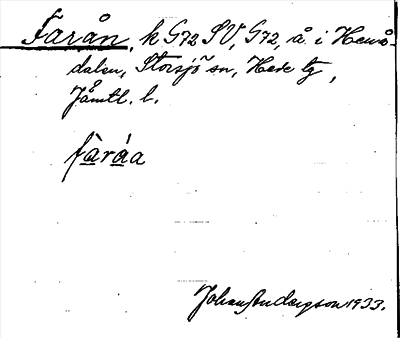 Farån, k G72 SV, G72, å i Henå-
dalen, Storsjö sn, Hede tg,
Jämtl. l.
fàráa
Johan Anderson 1933.